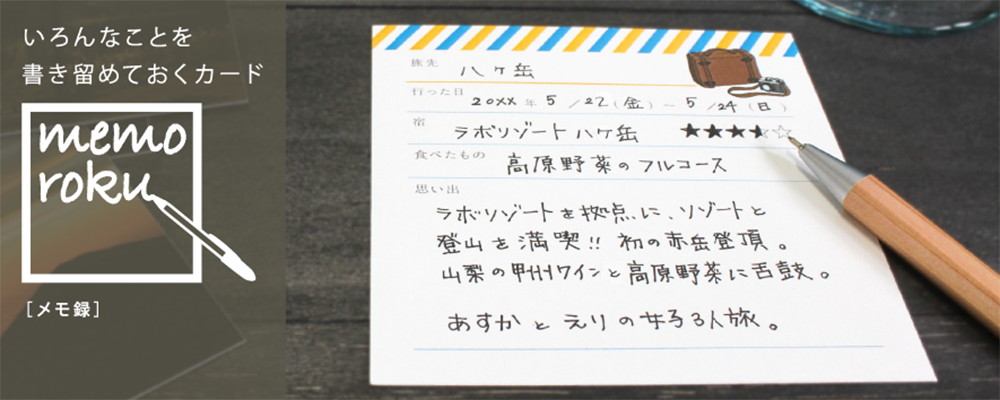 いろんなことを
書き留めておくカード
memo
roku
[メモ録]
旅先 八ヶ岳
行った日 20XX 年 5 / 22 (金) – 5 / 24 (日)
宿 ラボリゾート八ヶ岳 ★★★
食べたもの 高原野菜のフルコース
思い出
ラボリゾートを拠点に、リゾートと
登山を満喫!! 初の赤岳登頂。
山梨の甲州ワインと高原野菜に舌鼓。
あすかとえりの女ふたり旅。